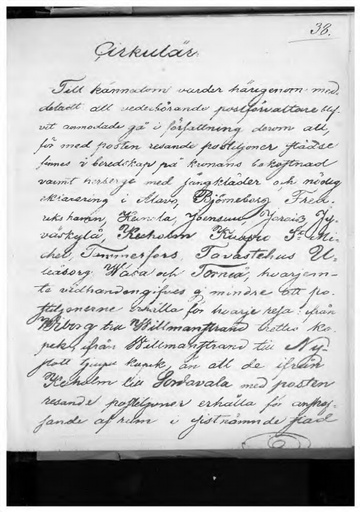 38.
Cirkulär.
Till kännedom varder härigenom med-
deladt att vederbörande postförvaltare blif-
vit anmodade gå i författning derom att,
för med posten resande postiljoner städse
finnes i beredskap på kronans bekostnad
varmt herberge med sängkläder och nödig
eklärering i Åbo, Björneborg Fred-
rikshamn, Joensuu, Jy-
väskylä, Kexholm Kuopio St. Mi-
chel, Tammerfors, Tavastehus U-
leåborg Wasa och Torneå, hvarjem-
te vidhandengifves mindre att po-
stiljonerne erhålla för hvarje resa ifrån
Wiborg till Willmanstrand trettio ko-
pek, ifrån Willmanstrand till Ny-
slott tjugu kopek, än att de ifrån
Kexholm till Sordavala med posten
resande postiljoner erhålla för
af rum i sistnämnde stad